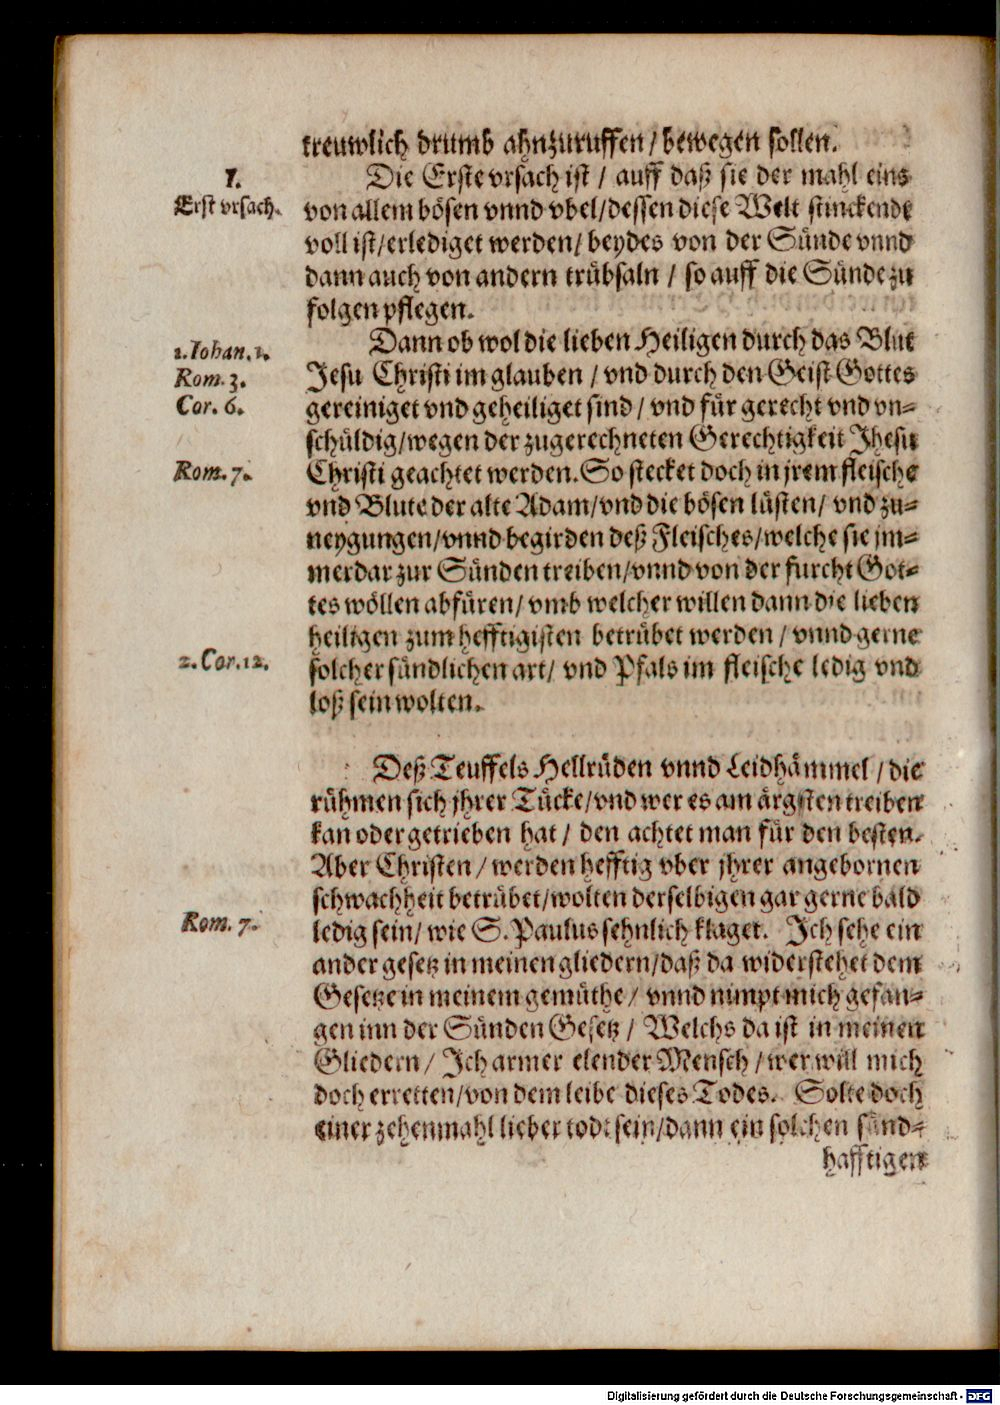 trewlich drumb ahnzuruffen / bewegen sollen.
I.
Erst vrsach.
Die Erste vrsach ist / auff daß sie der mahl eins
von allem bösen vnnd vbel/dessen diese Welt stinckende
voll ist/erlediget werden/ beydes von der Sünde vnnd
dann auch von andern trübsaln / so auff die Sünde zu
folgen pflegen.
1.Iohan.1.
Rom. 3.
Cor. 6.
Rom. 7.
2.Cor.12.
Dann ob wol die lieben Heiligen durch das Blut
Jesu Christi im glauben / vnd durch den Geist Gottes
gereiniget vnd geheiliget sind / vnd für gerecht vnd vn=
schüldig/wegen der zugerechneten Gerechtigkeit Jhesu
Christi geachtet werden. So stecket doch in jrem fleische
vnd Blute der alte Adam/vnd die bösen lüsten/ vnd zu=
neygungen/vnnd begirden deß Fleisches/welche sie jm=
merdar zur Sünden treiben/vnnd von der furcht Got=
tes wöllen abfüren/ vmb welcher willen dann die lieben
heiligen zum hefftigisten betrübet werden / vnnd gerne
solcher sündlichen art/ vnd Pfals im fleische ledig vnd
loß sein wolten.
Deß Teuffels Hellrüden vnnd Leidhämmel / die
rühmen sich jhrer Tücke/vnd wer es am ärgsten treiben
kan oder getrieben hat / den achtet man für den besten.
Aber Christen / werden hefftig vber jhrer angebornen
schwachheit betrübet/wolten derselbigen gar gerne bald
Rom. 7.
ledig sein/ wie S. Paulus sehnlich klaget. Ich sehe ein
ander gesetz in meinen gliedern/daß da widerstehet dem
Gesetze in meinem gemüthe / vnnd nimpt mich gefan=
gen inn der Sünden Gesetz / Welchs da ist in meinen
Gliedern / Ich armer elender Mensch / wer will mich
doch erretten/von dem leibe dieses Todes. Solte doch
einer zehenmahl lieber todt sein/dann ein solchen sünd=
hafftigen
Digitalisierung gefördert durch die Deutsche Forschungsgemeinschaft - DFG